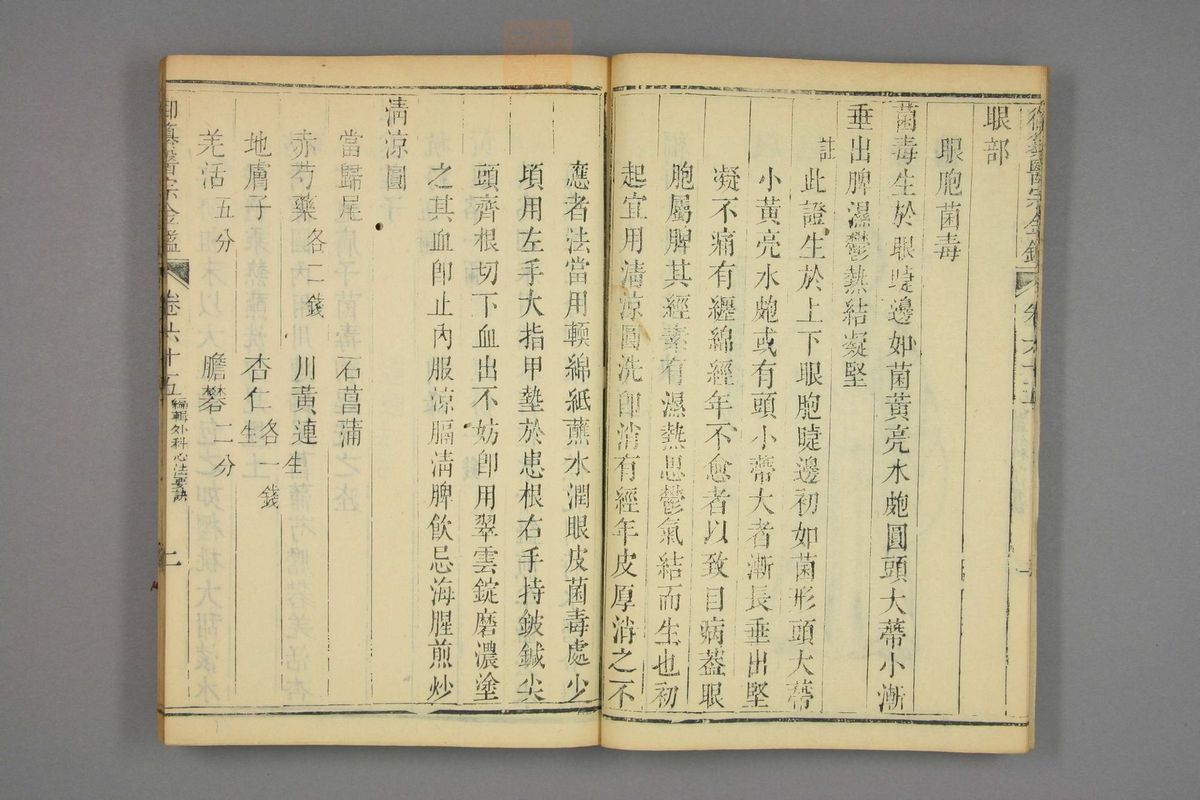 眼部
眼胞菌毒
菌毒生於眼睫邊如菌黃亮水皰圓頭大蔕小漸
垂出脾濕鬱熱結凝堅
註
此證生於上下眼胞睫邊初如菌形頭大蔕
小黃亮水皰或有頭小蔕大者漸長垂出堅
凝不痛有纏綿經年不愈者以致目病葢眼
胞屬脾其經素有濕熱思鬱氣結而生也初
起宜用清涼圓洗卽消有經年皮厚消之不
應者法當用輭綿紙蘸水潤眼皮菌毒處少
頃用左手大指甲墊於患根右手持鈹鍼尖
頭齊根切下血出不妨卽用翠雲錠磨濃塗
之其血卽止內服涼膈清脾飲忌海腥煎炒
清涼圓
當歸尾 石菖蒲
赤芍藥各二錢 川黃連生
地膚子 杏仁生各一錢
羌活五分 膽礬二分
御纂醫宗金鑑 卷六十五 編輯外科心法要訣 二